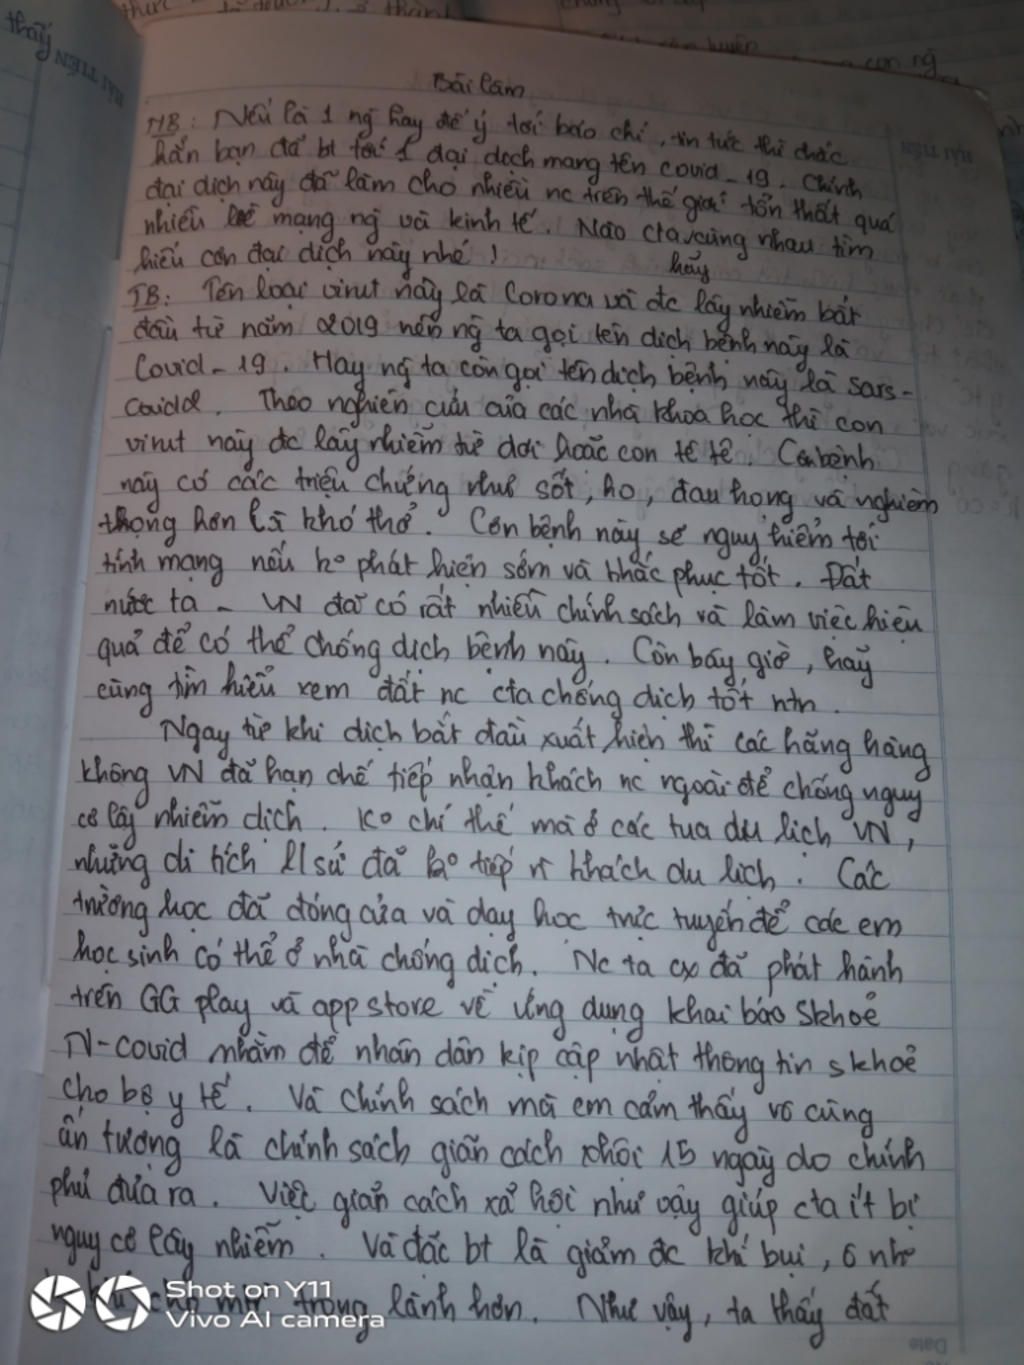 Bài làm
MB: Nếu là 1 ng hay để ý tới báo chí, tin tức thì chắc
hẳn bạn đã bt tới 1 đại dịch mang tên covid-19. Chính
đại dịch này đã làm cho nhiều nc trên thế giới tổn thất quá
nhiều về mạng ng và kinh tế. Nào cta cùng nhau tìm
hiểu cơn đại dịch này nhé!
hãy
TB: Tên loại virut này là Corona và đc lây nhiễm bắt
đầu từ năm 2019 nên ng ta gọi tên dịch bệnh này là
Covid-19. Hay ng ta còn gọi tên dịch bệnh này là sars-
covid2. Theo nghiên cứu của các nhà khoa học thì con
virut này đc lây nhiễm từ dơi hoặc con tê tê. Cơn bệnh
này có các triệu chứng như sốt, ho, đau họng và nghiêm
trọng hơn là khó thở. Cơn bệnh này sẽ nguy hiểm tới
tính mạng nếu ko phát hiện sớm và khắc phục tốt. Đất
nước ta - VN đã có rất nhiều chính sách và làm việc hiệu
quả để có thể chống dịch bệnh này. Còn bây giờ, hãy
cùng tìm hiểu xem đất nc cta chống dịch tốt ntn.
Ngay từ khi dịch bắt đầu xuất hiện thì các hãng hàng
không VN đã hạn chế tiếp nhận khách nc ngoài để chống nguy
cơ lây nhiễm dịch. Ko chỉ thế mà ở các tua du lịch VN,
những di tích lsử đã ko tiếp khách du lịch. Các
trường học đã đóng cửa và dạy học trực tuyến để các em
học sinh có thể ở nhà chống dịch. Nc ta cx đã phát hành
trên GG play và app store về ứng dụng khai báo skhoẻ
N-covid nhằm để nhân dân kịp cập nhật thông tin skhoẻ
cho bộ y tế. Và chính sách mà em cảm thấy vô cùng
ấn tượng là chính sách giãn cách xhội 15 ngày do chính
phủ đưa ra. Việc giãn cách xã hội như vậy giúp cta ít bị
nguy cơ lây nhiễm. Và đặc bt là giảm đc khí bụi, ô nh
cho trong lành hơn. Như vậy, ta thấy đất
Shot on Y11
Vivo AI camera
Date
thấy
BÀI TIÊN
con ng